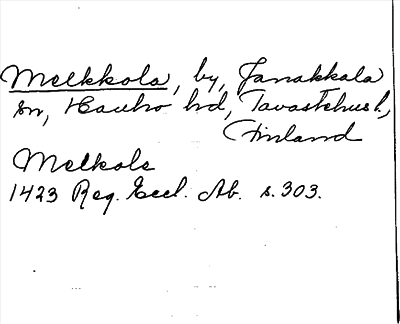 Melkkola, by, Janakkala
sn, Hauho hd, Tavastehus l.,
Finland
Melkole
1423 Reg. Eccl. Ab. s. 303.